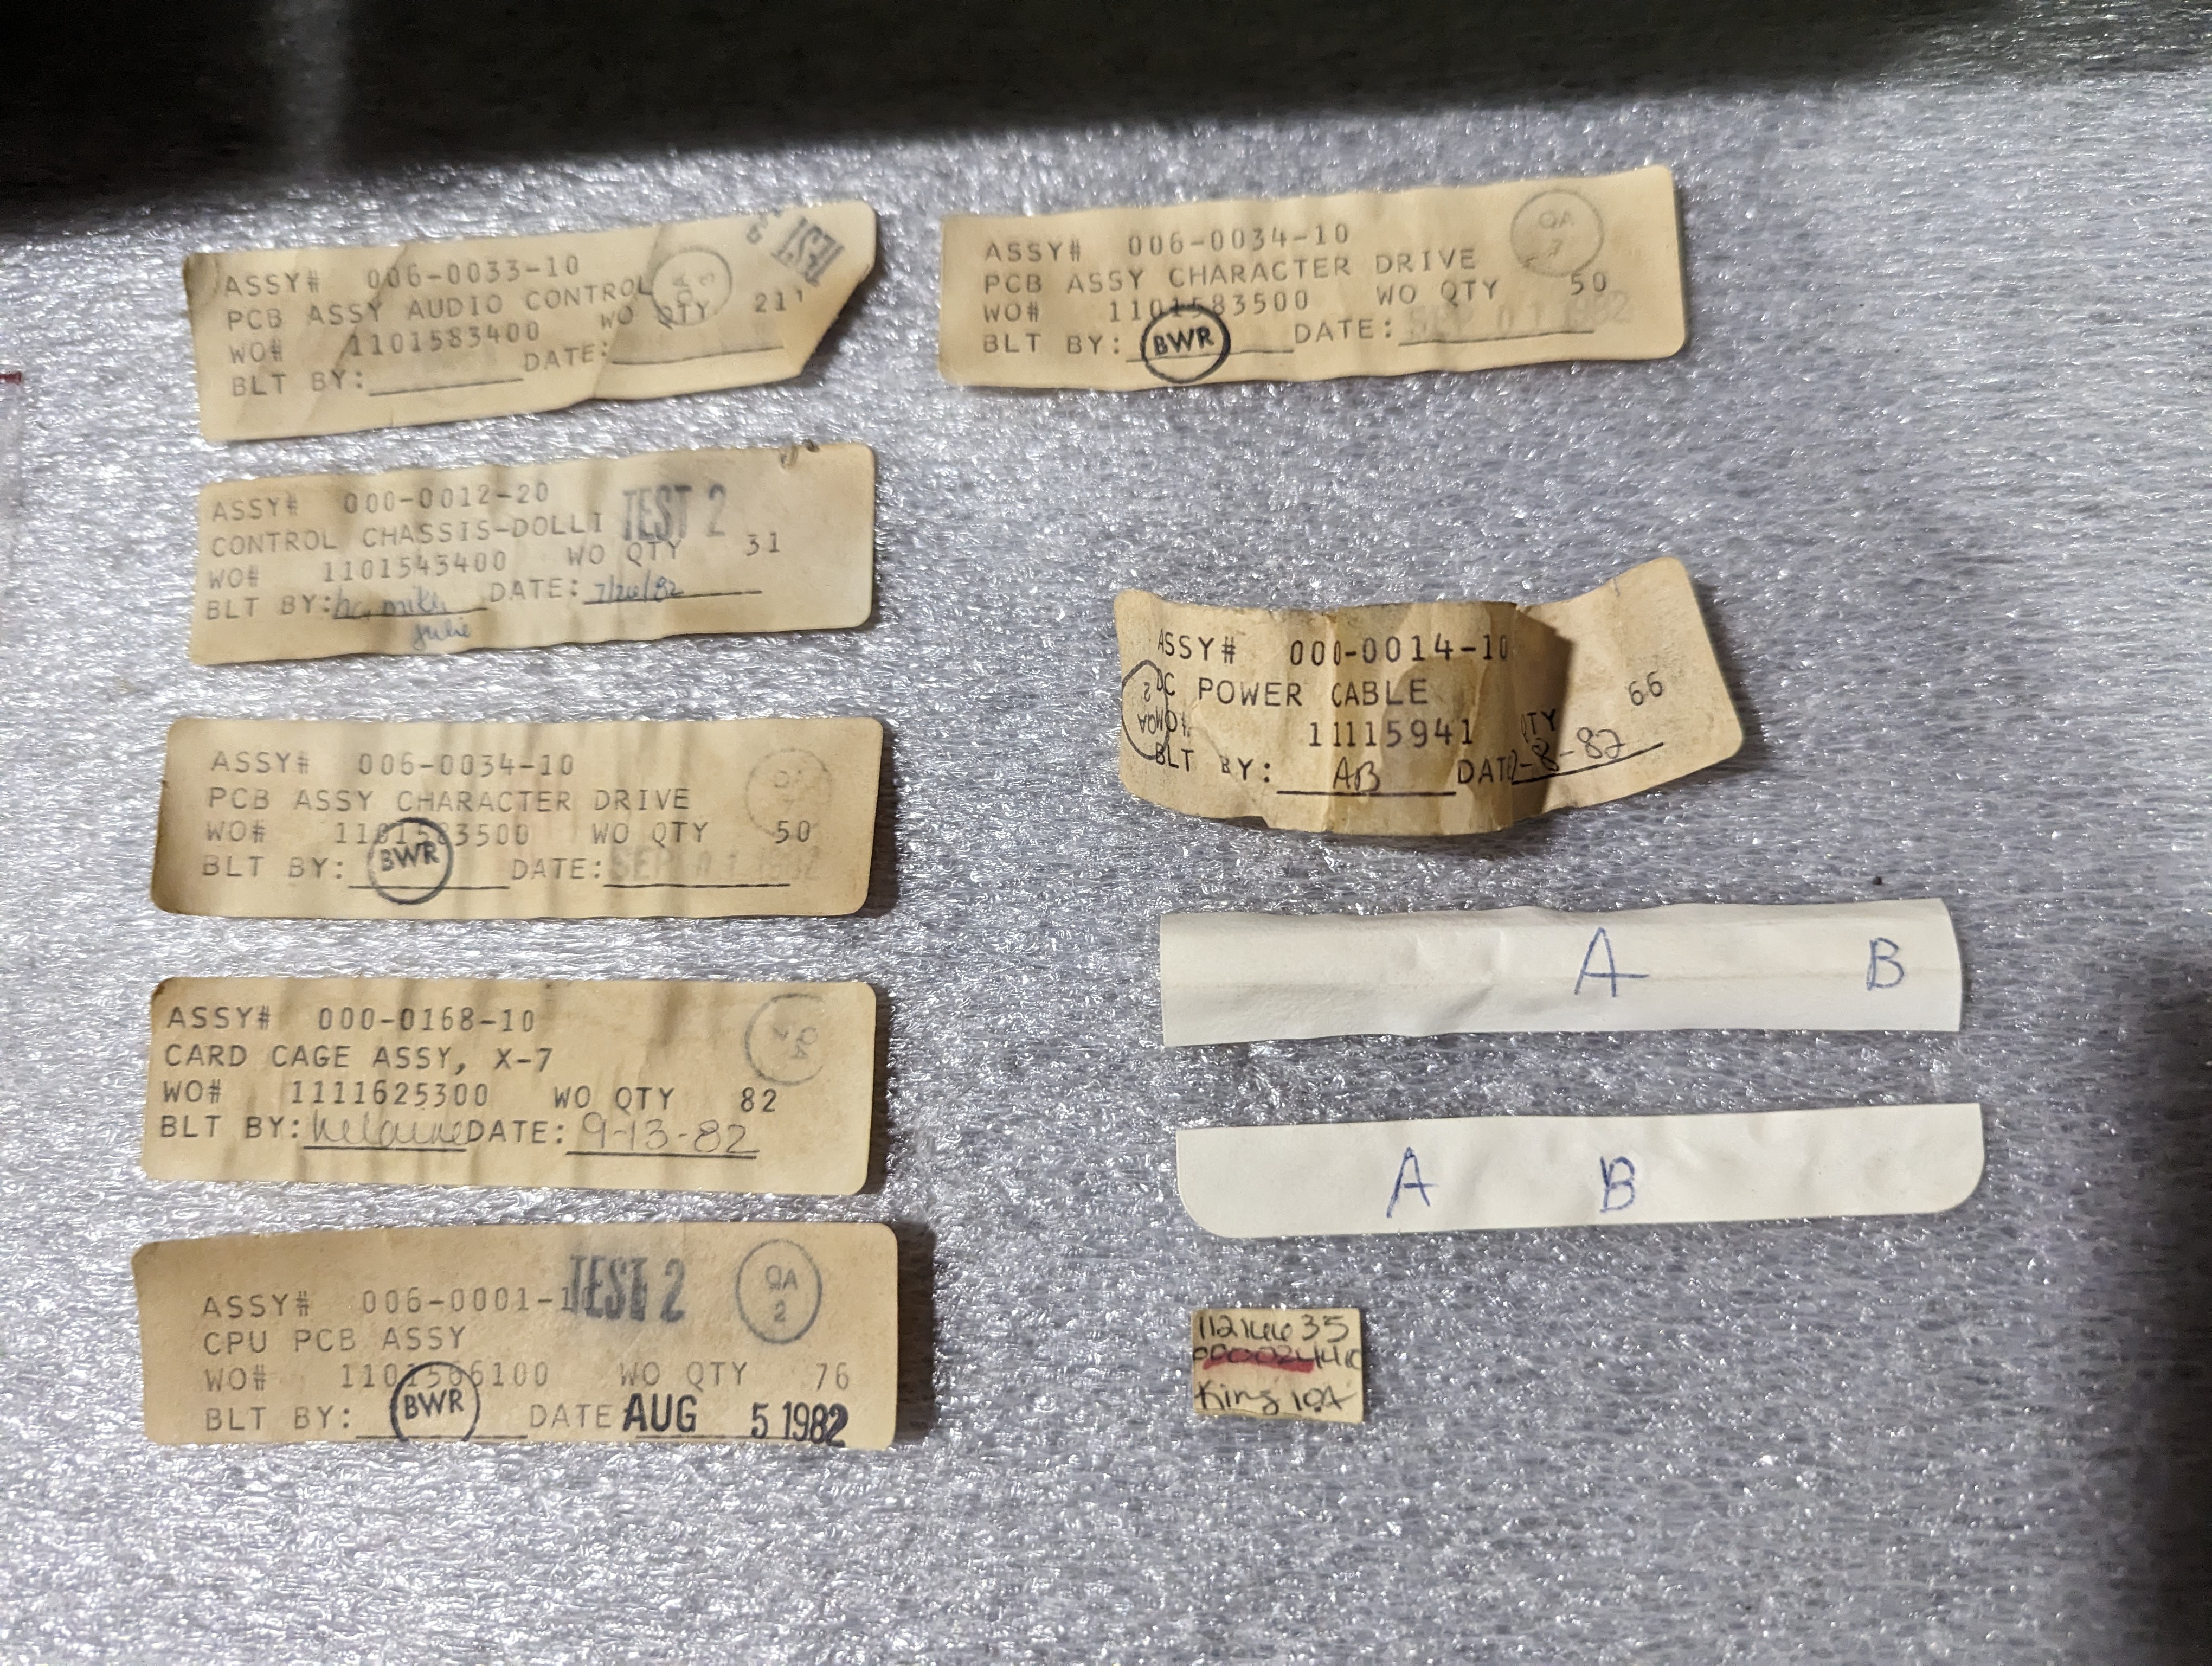 ASSY# 006-0033-10
PCB ASSY AUDIO CONTROL
WO# 1101583400 WO QTY 211
BLT BY: DATE:
TEST
ASSY# 000-0012-20
CONTROL CHASSIS-DOLLI
TEST 2
WO# 1101543400 WO QTY 31
BLT BY: mike DATE: 7/26/82
julie
ASSY# 006-0034-10
PCB ASSY CHARACTER DRIVE
WO# 1101583500 WO QTY 50
BLT BY: BWR DATE: SEP 01 1982
QA
ASSY# 000-0168-10
CARD CAGE ASSY, X-7
WO# 1111625300 WO QTY 82
BLT BY: DATE: 9-13-82
QA
ASSY# 006-0001-1
TEST 2
QA
2
CPU PCB ASSY
WO# 1101566100 WO QTY 76
BLT BY: BWR DATE AUG 5 1982
ASSY# 006-0034-10
QA
PCB ASSY CHARACTER DRIVE
WO# 1101583500 WO QTY 50
BLT BY: BWR DATE: SEP 01 1982
ASSY# 000-0014-10
DC POWER CABLE
WO# 11115941 QTY 66
BLT BY: AB DAT -8-82
QA
2
A B
A B
King